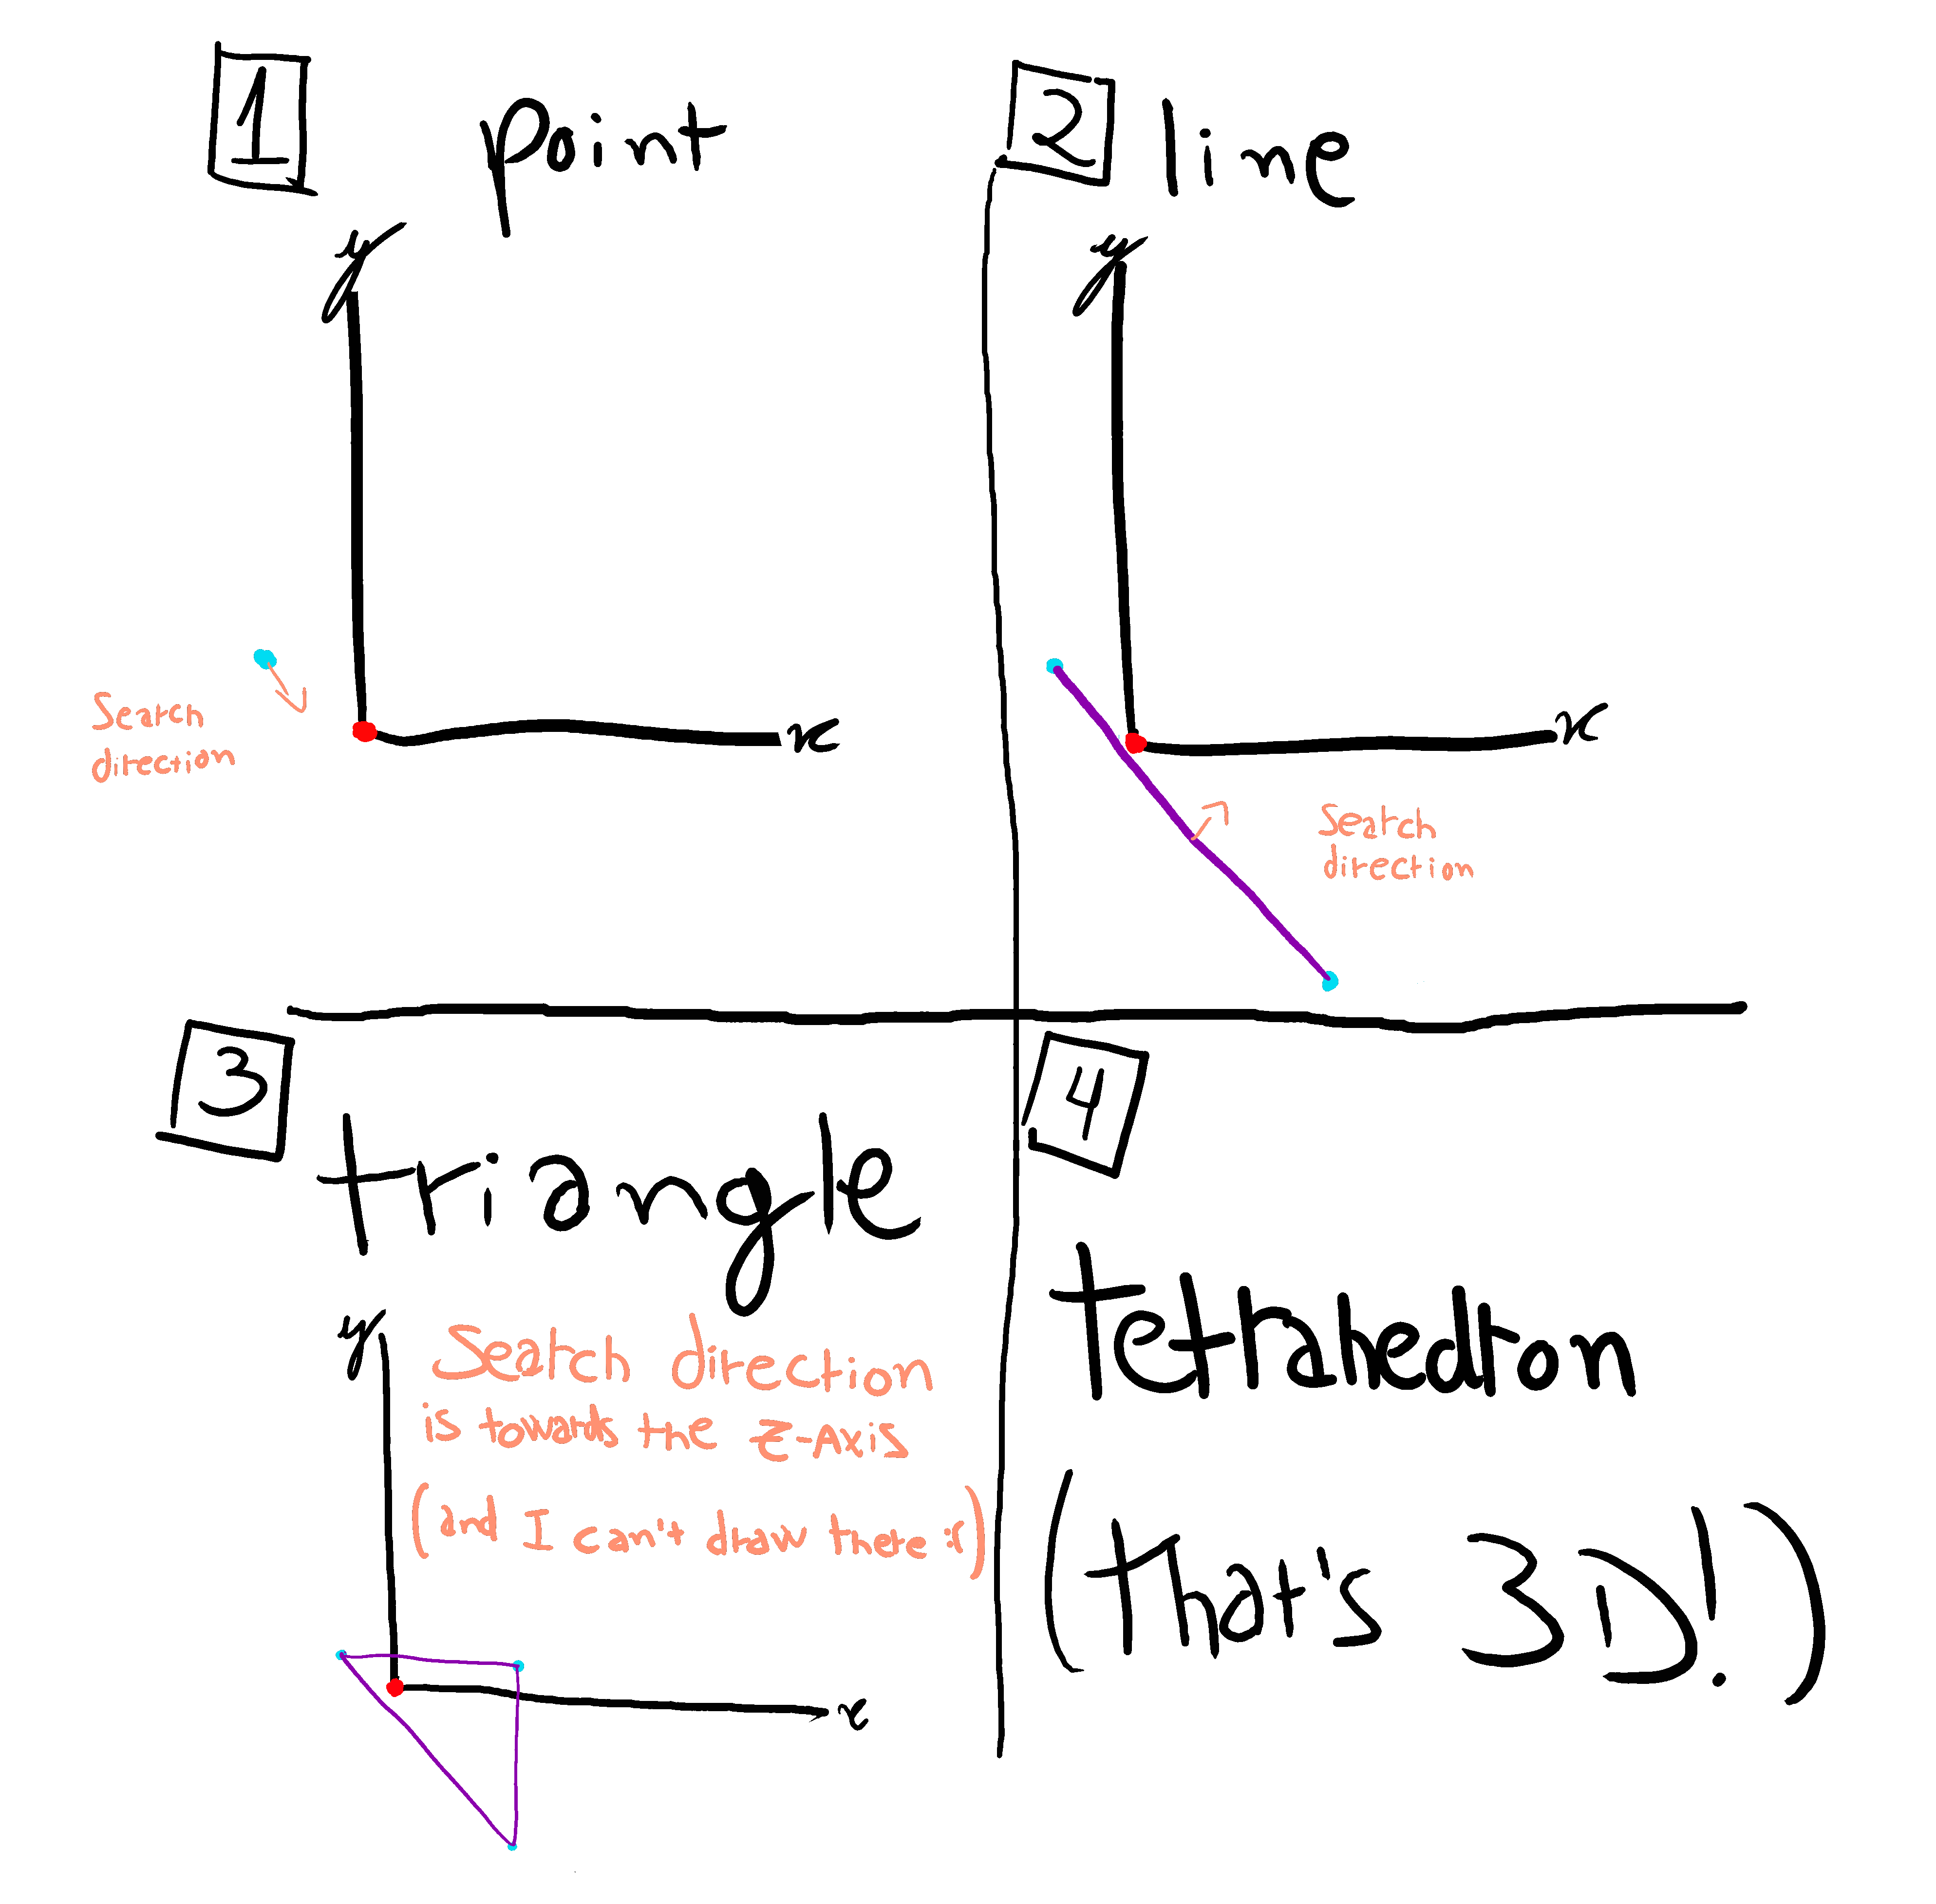 1
point
y
Search
direction
x
2
line
y
x
Search
direction
3
triangle
y
Search direction
is towards the z-Axis
(and I can't draw there :()
x
4
tetrahedron
(that's 3D!)